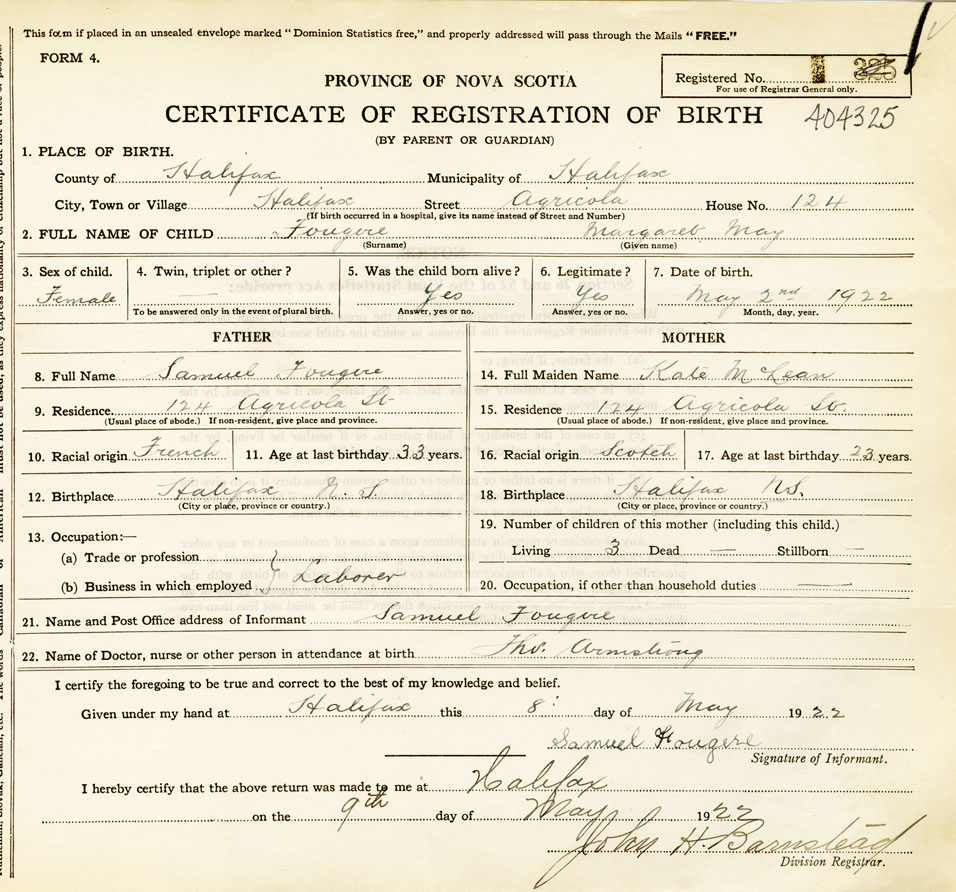 This form if placed in an unsealed envelope marked "Dominion Statistics free," and properly addressed will pass through the Mails "FREE."
FORM 4.
PROVINCE OF NOVA SCOTIA
Registered No. 325
For use of Registrar General only.
CERTIFICATE OF REGISTRATION OF BIRTH 404325
(BY PARENT OR GUARDIAN)
1. PLACE OF BIRTH.
County of Halifax Municipality of Halifax
City, Town or Village Halifax Street Agricola House No. 124
(If birth occurred in a hospital, give its name instead of Street and Number)
2. FULL NAME OF CHILD Fougere Margaret May
(Surname) (Given name)
3. Sex of child. 4. Twin, triplet or other? 5. Was the child born alive? 6. Legitimate? 7. Date of birth.
Female — Yes Yes May 2nd 1922
To be answered only in the event of plural birth. Answer, yes or no. Answer, yes or no. Month, day, year.
FATHER
8. Full Name Samuel Fougere
9. Residence. 124 Agricola St
(Usual place of abode.) If non-resident, give place and province.
10. Racial origin French 11. Age at last birthday 33 years.
12. Birthplace Halifax N. S.
(City or place, province or country.)
13. Occupation:—
(a) Trade or profession
(b) Business in which employed } Laborer
MOTHER
14. Full Maiden Name Kate McLean
15. Residence 124 Agricola St.
(Usual place of abode.) If non-resident, give place and province.
16. Racial origin Scotch 17. Age at last birthday 23 years.
18. Birthplace Halifax NS.
(City or place, province or country.)
19. Number of children of this mother (including this child.)
Living 3 Dead — Stillborn —
20. Occupation, if other than household duties —
21. Name and Post Office address of Informant Samuel Fougere
22. Name of Doctor, nurse or other person in attendance at birth Tho. Armstrong
I certify the foregoing to be true and correct to the best of my knowledge and belief.
Given under my hand at Halifax this 8 day of May 1922
Samuel Fougere
Signature of Informant.
I hereby certify that the above return was made to me at Halifax
on the 9th day of May 1922
John H. Barnstead
Division Registrar.